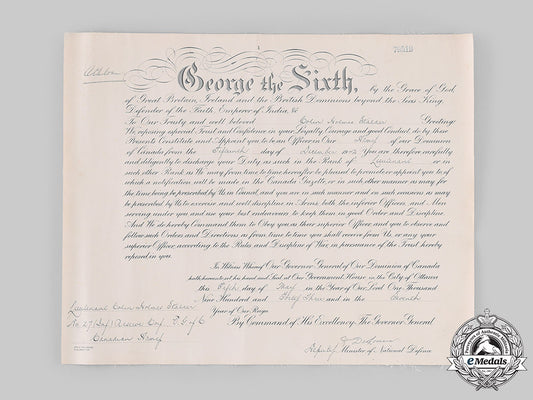 George the Sixth,
by the Grace of God
of Great Britain, Ireland and the British Dominions beyond the Seas King,
Defender of the Faith, Emperor of India, &c
To Our Trusty and well beloved Colin Holmes Greeting:
We reposing especial Trust and Confidence in your Loyalty, Courage and good Conduct, do by these
Presents Constitute and Appoint you to be an Officer in Our Army of our Dominion
of Canada from the day of December 1942 You are therefore carefully
and diligently to discharge your Duty as such in the Rank of Lieutenant or in
such other Rank as We may from time to time hereafter be pleased to promote or appoint you to, of
which a notification will be made in the Canada Gazette, or in such other manner as may for
the time being be prescribed by Us in Council, and you are in such manner and on such occasions as may
be prescribed by Us to exercise and well discipline in Arms, both the inferior Officers and Men
serving under you and use your best endeavours to keep them in good Order and Discipline.
And We do hereby Command them to Obey you as their superior Officer, and you to observe and
follow such Orders and Directions as from time to time you shall receive from Us, or any your
superior Officer, according to the Rules and Discipline of War, in pursuance of the Trust hereby
reposed in you.
In Witness Whereof Our Governor General of Our Dominion of Canada
hath hereunto set his hand and Seal at Our Government House in the City of Ottawa
this Fifth day of May in the Year of Our Lord One Thousand
Nine Hundred and Forty Three and in the Seventh
Year of Our Reign
By Command of His Excellency The Governor General
Lieutenant Colin Holmes
No. 27 (Inf) Reserve Coy. V G of C
Canadian Army
Deputy Minister of National Defence
eMedals